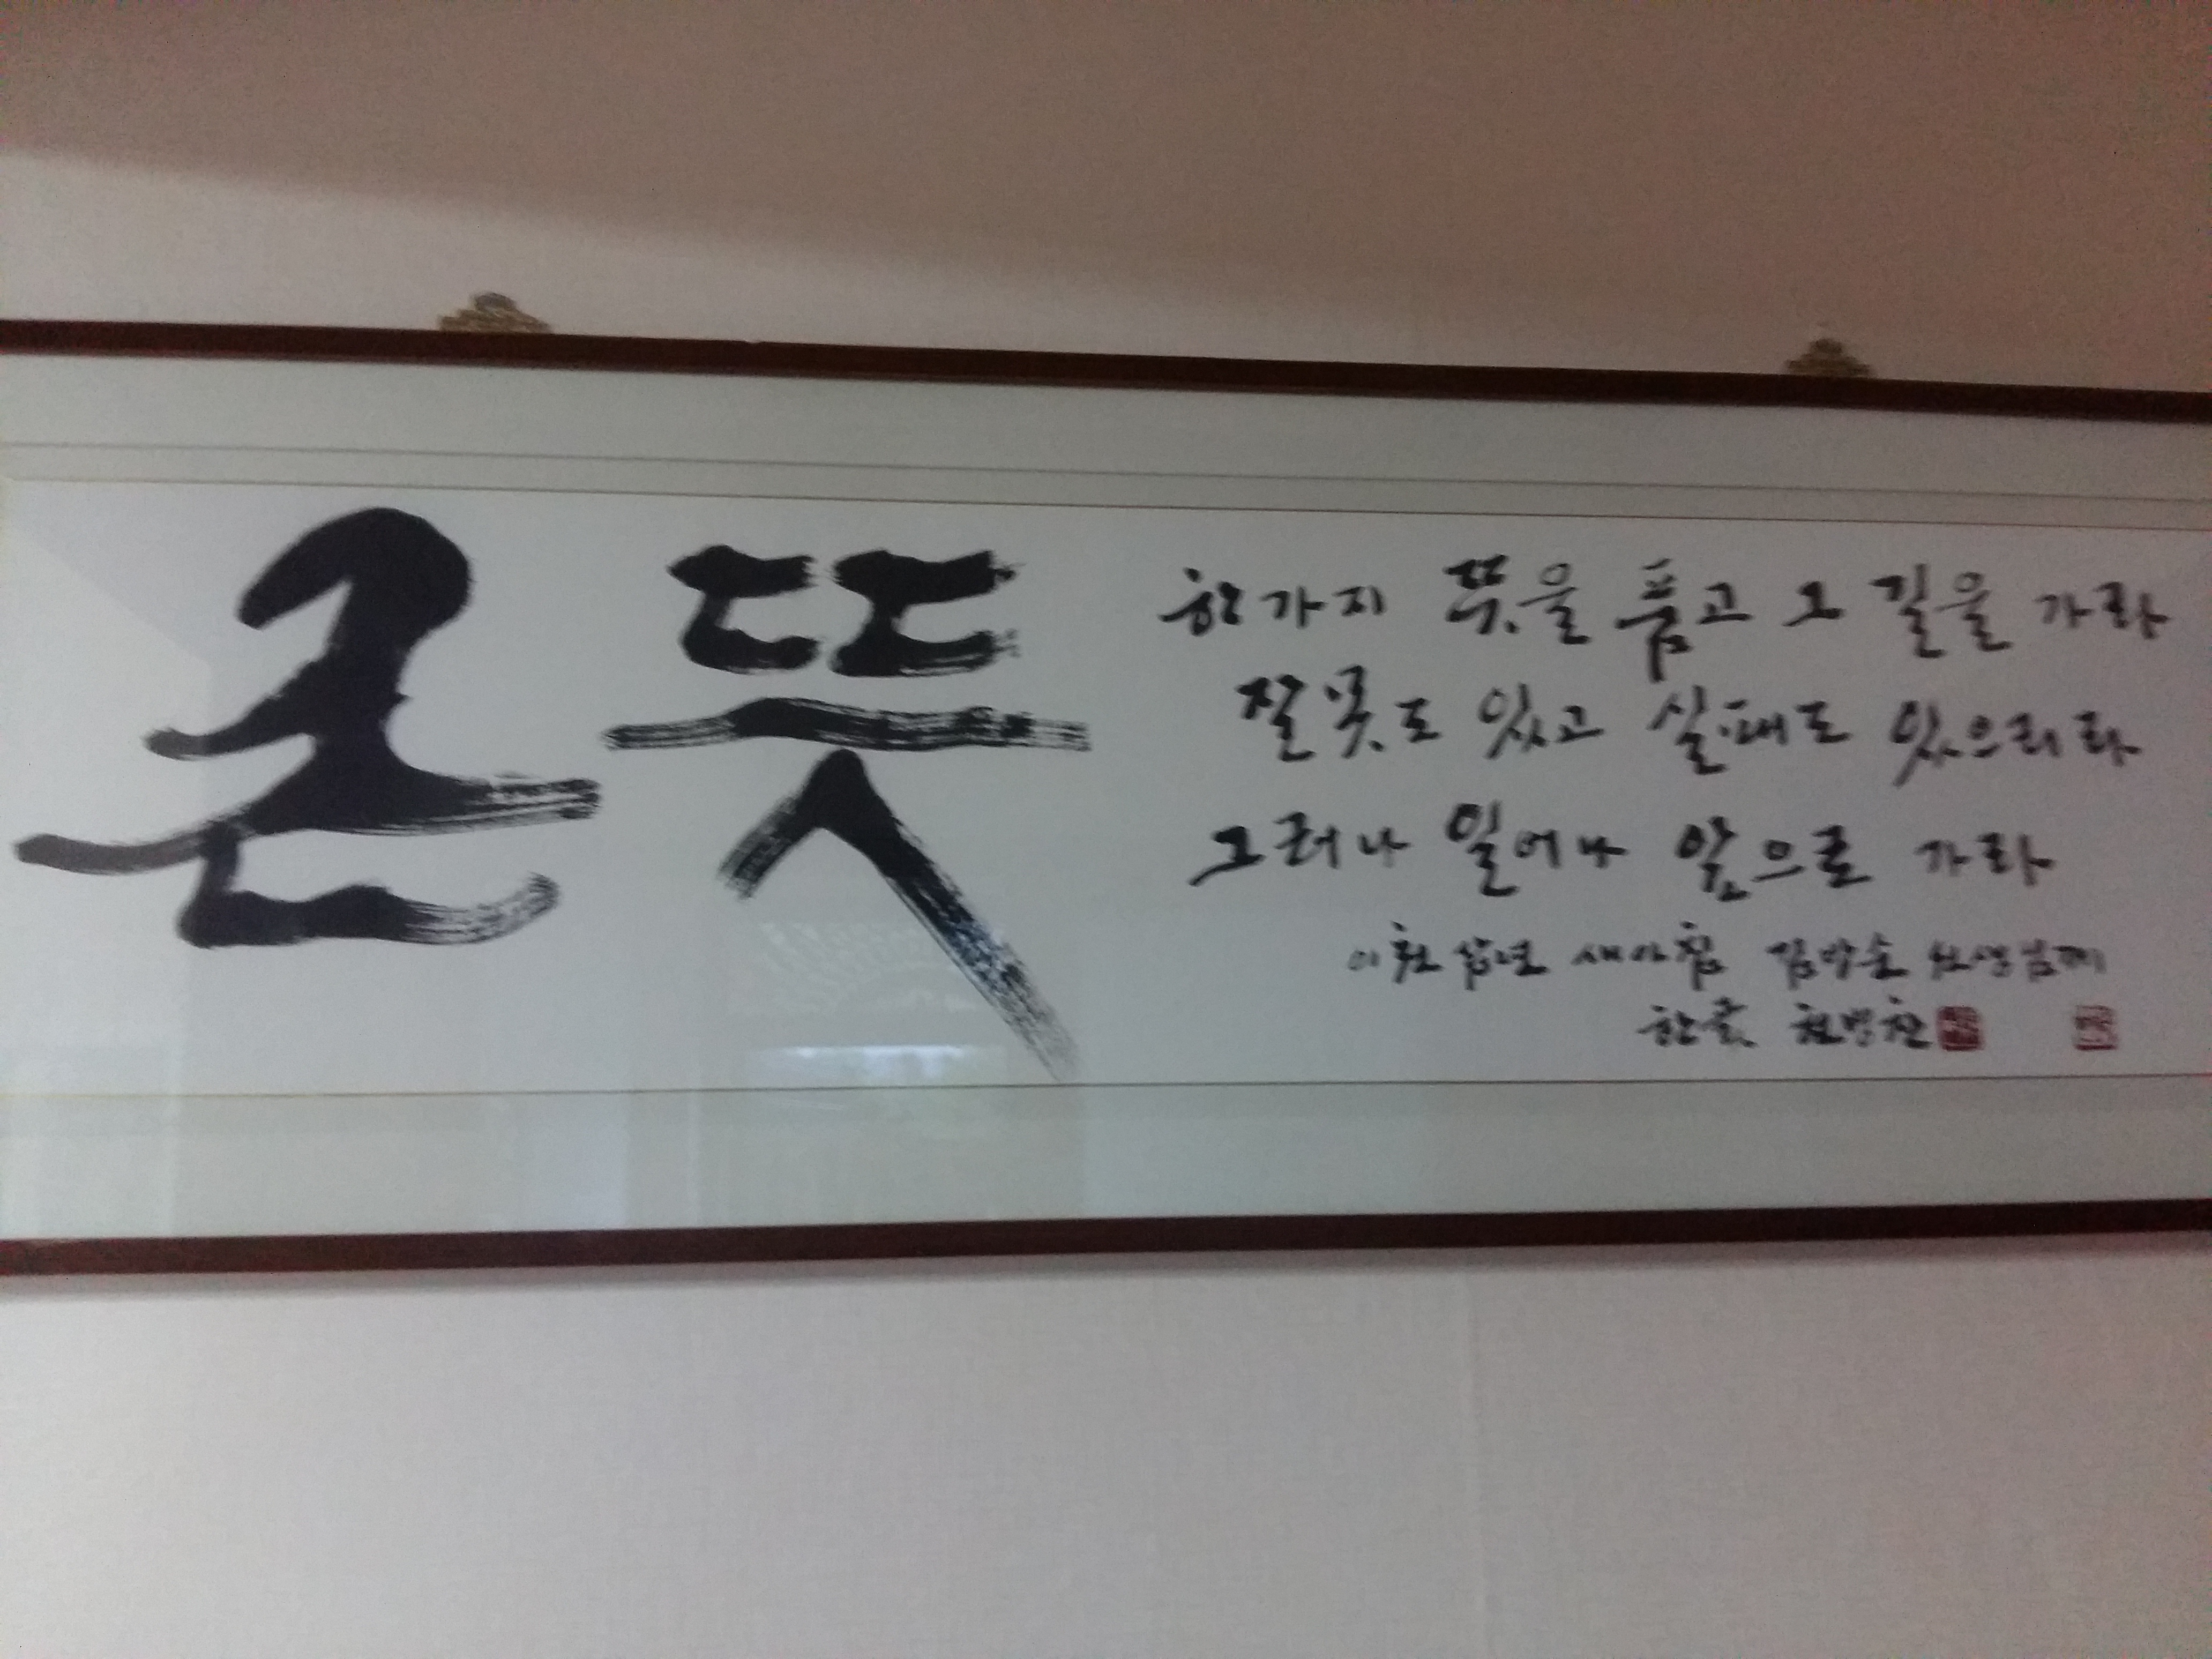 큰 뜻
한가지 뜻을 품고 그 길을 가라
잘못도 있고 실패도 있으리라
그러나 일어나 앞으로 가라
이천 삼년 새아침 선생님께
한글